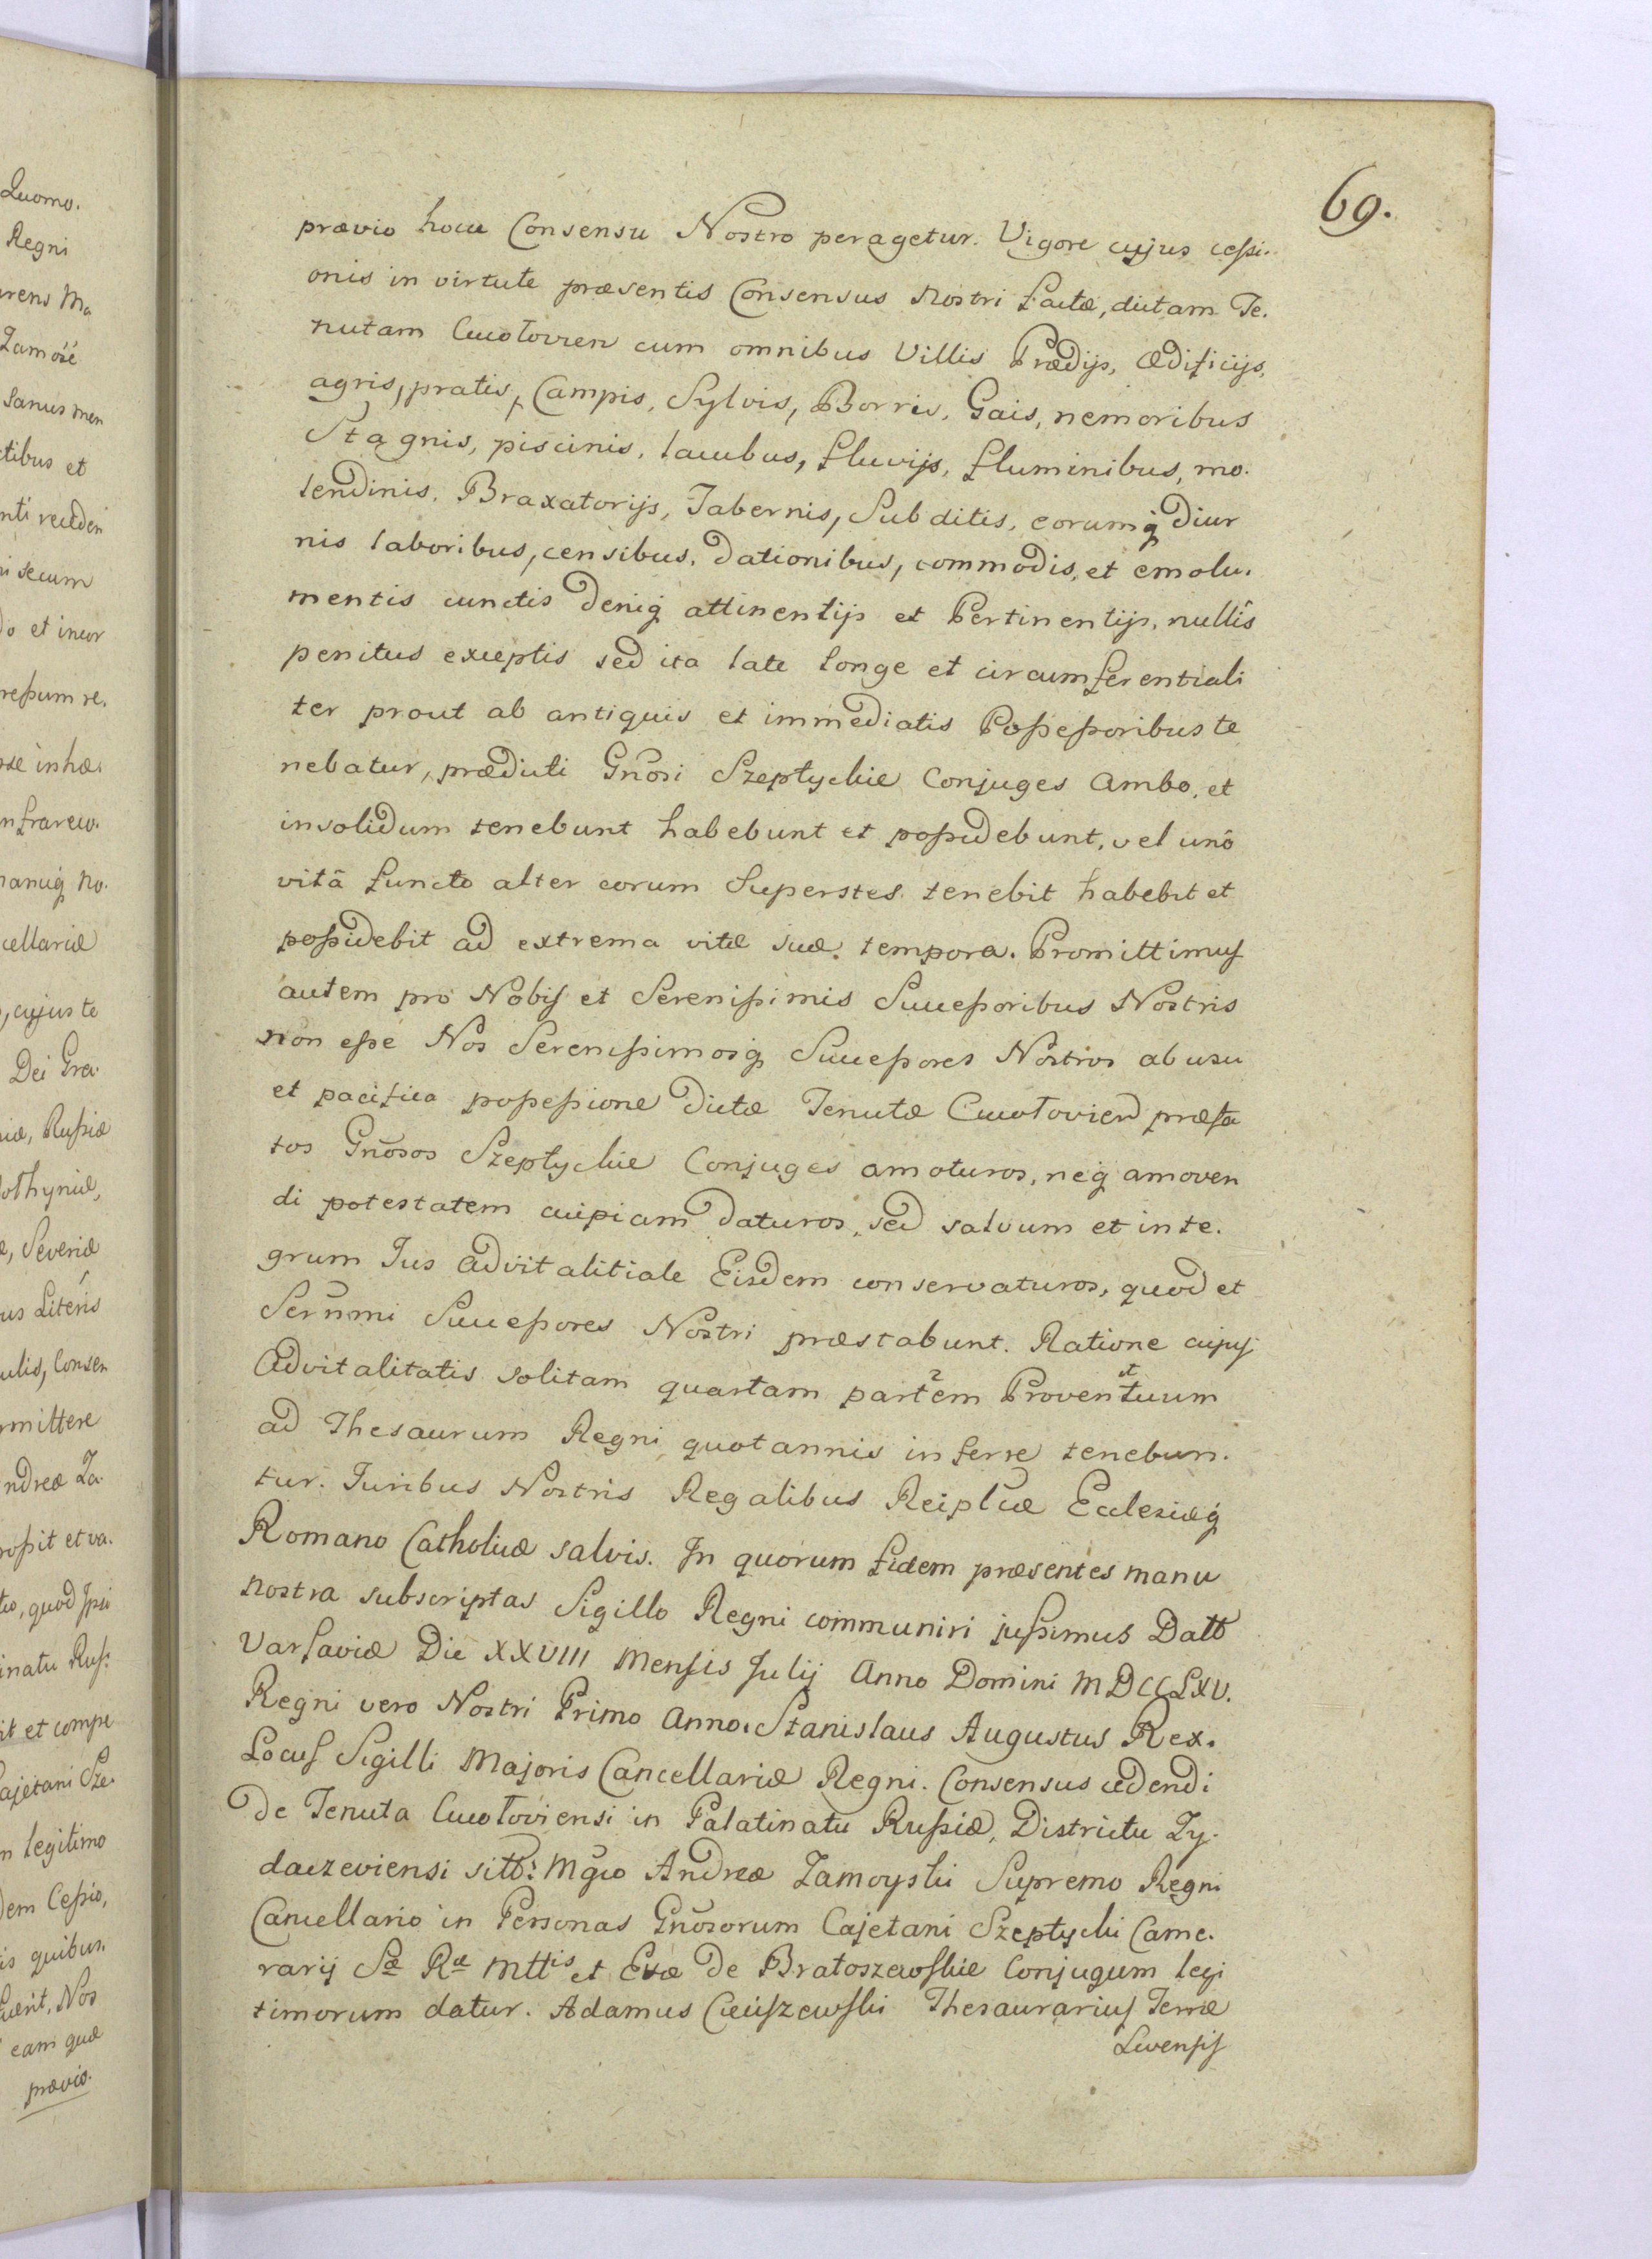 69.
prævio hocce Consensu Nostro peragetur. Vigore cujus cessi-
onis in virtute præsentis Consensus Nostri factæ, dictam Te-
nutam Cucołovien cum omnibus Villis Prædijs, Ædificijs,
agris, pratis, Campis, Sylvis, Borris, Gais, nemoribus
Stagnis, piscinis, lacubus, fluvijs, fluminibus, mo-
lendinis, Braxatorijs, Tabernis, Subditis, eorumq̃ diur
nis laboribus, censibus, dationibus, commodis, et emolu-
mentis cunctis deniq̃ attinentijs et Pertinentijs, nullis
penitus exceptis sed ita late longe et circumferentiali
ter prout ab antiquis et immediatis Possessoribus te
nebatur, prædicti Gñosi Szeptyckie Conjuges Ambo, et
insolidum tenebunt habebunt et possidebunt, vel unô
vitâ functo alter eorum Superstes tenebit habebit et
possidebit ad extrema vitæ suæ tempora. Promittimus
autem pro Nobis et Serenissimis Successoribus Nostris
non esse Nos Serenissimosq̃ Successores Nostros ab usu
et pacifica possessione dictæ Tenutæ Cucołovien præfa
tos Gñosos Szeptyckie Conjuges amoturos, neq̃ amoven
di potestatem cuipiam daturos, sed salvum et inte-
grum Jus Advitalitiale Eisdem conservaturos, quod et
Serñmi Successores Nostri præstabunt. Ratione cujus
Advitalitatis solitam quartam partem 2 Proventuum et
ad Thesaurum Regni quotannis inferre tenebun-
tur. Juribus Nostris Regalibus Reiplcæ Ecclesiæq̃
Romano Catholicæ salvis. In quorum fidem præsentes manu
nostra subscriptas Sigillo Regni communiri jussimus Datt
Varsaviæ Die XXVIII Mensis Julij Anno Domini MDCCLXV.
Regni vero Nostri Primo Anno. Stanislaus Augustus Rex.
Locus Sigilli Majoris Cancellariæ Regni. Consensus cedendi
de Tenuta Cucołoviensi in Palatinatu Russiæ, Districtu Zy-
daczeviensi sitt: Mg̃co Andreæ Zamoyski Supremo Regni
Cancellario in Personas Gñosorum Cajetani Szeptycki Came-
rarij Sæ Ræ Mttis et Evæ de Bratoszewskie Conjugum legi
timorum datur. Adamus Cieciszewski Thesaurarius Terræ
Livensis